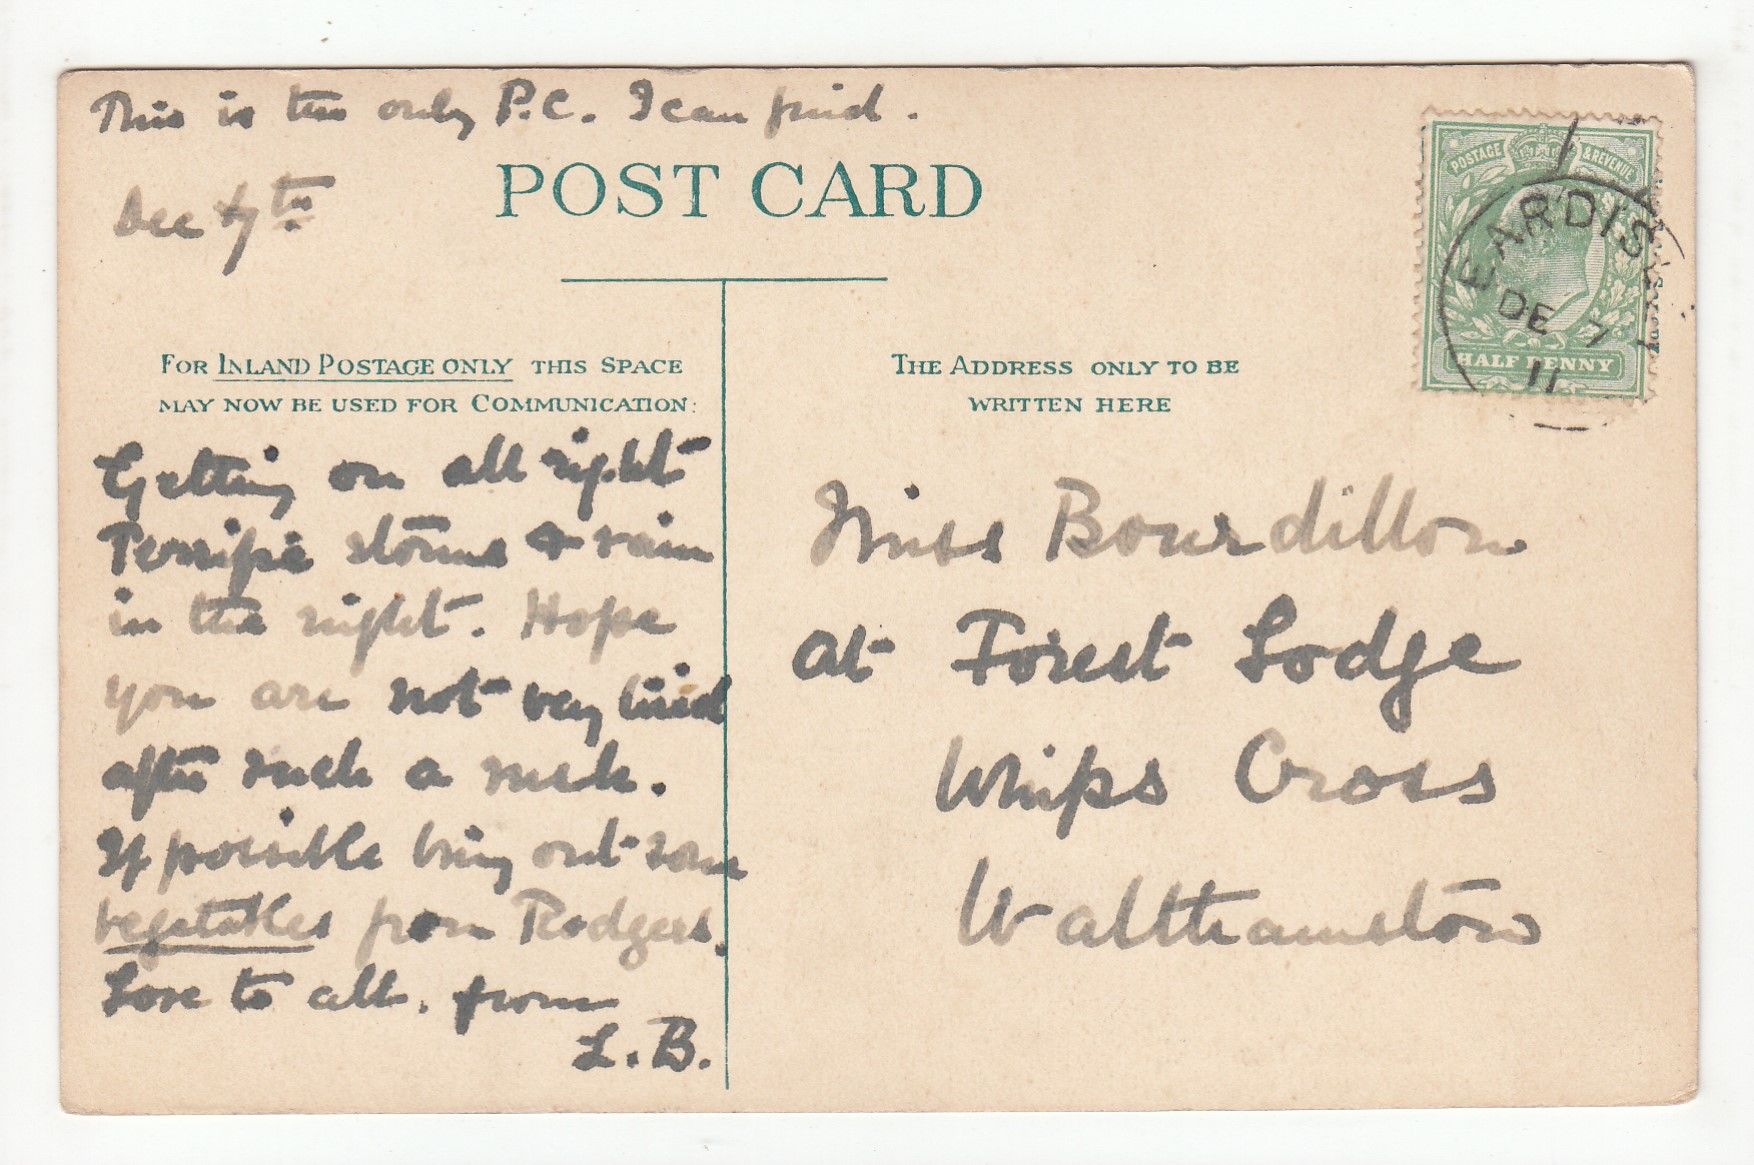 This is the only P.C. I can find.
Dec 7th
POST CARD
FOR INLAND POSTAGE ONLY THIS SPACE
MAY NOW BE USED FOR COMMUNICATION:
Getting on all right
Terrific storms & rain
in the night. Hope
you are not very tired
after such a rush.
If possible bring out some
vegetables from Rodgers.
Love to all. from
L.B.
THE ADDRESS ONLY TO BE
WRITTEN HERE
Miss Bourdillon
at Forest Lodge
Whips Cross
Walthamstow
POSTAGE & REVENUE
HALF PENNY
EARDISL
DE 7
11